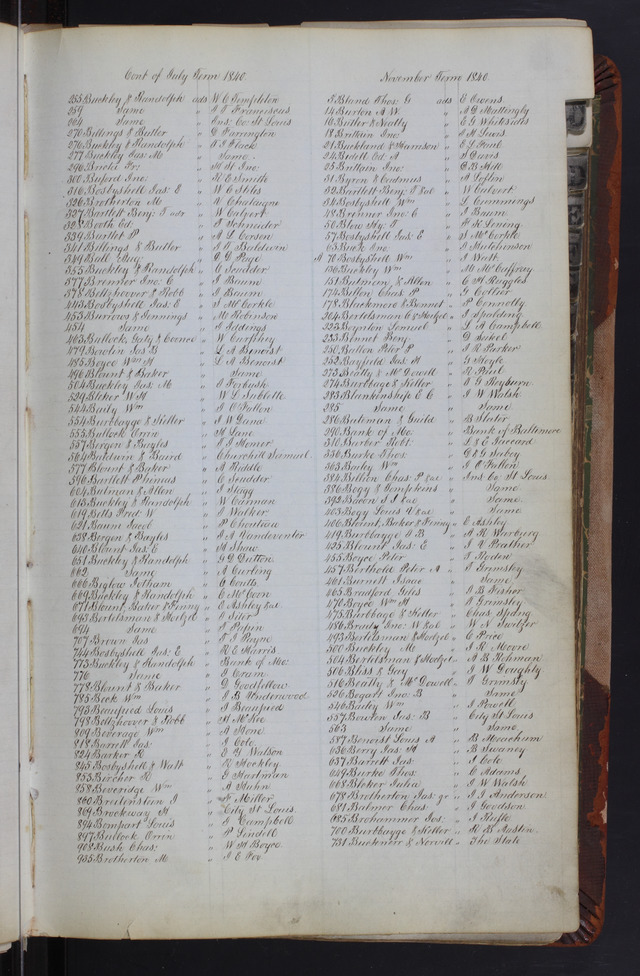 Cont of July Term 1840
255 Buckley & Randolph ads W C Templeton
259 Same " I T Franciscus
264 Same " Ins: Co: St Louis
270 Billings & Butler " G Farrington
276 Buckley & Randolph " T S Flack
277 Buckley Jas: M " Same
296 Buche Fr: " H H Ino:
300 Buford Ino: " R E Smith
316 Bosbyshell Jas: E " W C Stiles
326 Brotherton M " R Chataigne
327 Bartlett Benj: F adr " W Calvert
328 Booth Ed: " F Schneider
339 Burtlet P " A E Corsen
341 Billings & Butler " I T Baldwin
349 Ball Aug: " G G Page
355 Buckley & Randolph " C Scudder
377 Brenner Ino: C " I Baum
378 Beltzhoover & Robb " I Baum
445 Bosbyshell Jas: E " I McCorkle
453 Burrows & Jennings " M Robinson
454 Same " I Giddings
463 Bullock, Gaty & Coonce " W Carthey
479 Bowlin Jas B " L A Benoist
485 Boyce Wm H " L A Benoist
496 Blount & Baker " Same
504 Buckley Jas: M " O Forbush
529 Bleker W H " W L Sublette
544 Baily Wm " I O Fallon
554 Burbbayge & Killer " I W Gana
555 Bullock Orrin " H Lane
557 Bergen & Bayles " I I Homer
564 Baldwin & Baird Churchill Samuel
577 Blount & Baker " A Riddle
590 Bartlett Phineas " C Scudder
604 Bulman & Allen " I Stagg
615 Buckley & Randolph " W Chriman
619 Belts Fred: W " N Walker
621 Baum Jacob " P Chouteau
638 Bergen & Bayles " I A Vandeventer
640 Blount Jas: E " H Shaw
651 Buckley & Randolph " G G Dutton
662 Same " A Gurling
666 Biglow Jotham " C Coutts
669 Buckley & Randolph " C McCoon
671 Blount, Baker & Finny " E Ashley &al
693 Bertelsman & Hortzel " C Teter
694 Same " F Braun
707 Brown Jas " S I Payne
744 Bosbyshell Jas: E " R E Harris
773 Buckley & Randolph " Bank of Mo:
776 Same " E Oram
778 Blount & Baker " D Goodfellow
785 Beck Wm " I B Underwood
793 Beaufied Louis " I Beaufied
798 Beltzhoover & Robb " H McKee
809 Beverage Wm " A Stone
818 Barrell Jas: " I Cole
824 Barker R " C R Watson
845 Bosbyshell & Watt " R Stockley
853 Bircher R " G Hartman
858 Beveridge Wm " A Huhn
860 Breitenstein I " F Miller
869 Brookway H " City St Louis
894 Bompart Louis " I Campbell
897 Bullock Orrin " P Lindell
908 Bush Chas: " W H Boyce
935 Brotherton M " I E Yoe
November Term 1840
5 Bland Thos: G ads E Owens
14 Burton A W " A G Mattingly
16 Butler & Neatly " E G Whitesides
18 Brittain Ino: " I H Lewis
21 Buckland & Harrison " E L Paul
24 Bedell Ed: A " I Davis
25 Brittain Ino: " C B Hill
31 Byron & Cadmus " I Loflen
32 Bartlett Benj: F &al " W Calvert
34 Bosbyshell Wm " L Cummings
48 Brenner Ino: C " I Baum
50 Blow Hy: T " F K Lening
57 Bosbyshell Jas: E " I McCorkle
63 Buck Ino: " I Hutchinson
A 70 Bosbyshell Wm " I Watt
136 Buckley Wm " M McCaffray
151 Bulman & Allen " C H Ruggles
174 Billon Chas P " G Collier
178 Blackmore & Bonnet " P Connolly
204 Bertelsman C & Hortzel " I Spalding
225 Boynton Samuel " L A Campbell
233 Bonnet Benj: " D Switch
250 Ballon Peter P " I R Parker
252 Bayfield Jas: H " G Hoyle
273 Beatty & McDowell " R Paul
274 Burbbage & Killer " A G Heyburn
283 Blankenship E C " I W Walsh
285 Same " Same
286 Bateman & Guild " B Slater
290 Bank of Mo: " Bank of Baltimore
310 Barber Robt: " L & E Guiccard
336 Burke Thos: " C & G Seebey
363 Bailey Wm " I O Fallon
384 Billon Chas: P &al " Ins: Co: St Louis
386 Bogy & Tompkins " Same
392 Baron I L &al " Same
403 Bogy Louis V &al " Same
406 Blount, Baker & Finny " E Ashley
419 Burbbayge E B " A R Warburg
435 Blount Jas: E " I V Prather
455 Boyce Peter " T Bioden
457 Berthold Peter A " T Grimsley
461 Burnett Isaac " Same
465 Bradford Giles " A B Fisher
470 Boyce Wm H " T Grimsley
475 Burbbage & Killer " Chas: Spring
486 Brady Ino: W &al " W N Switzer
493 Bertelsman & Hortzel " C Price
500 Buckley M " I R Moore
504 Bertelsman & Hortzel " A B Hohman
506 Bliss & Gay " I W Doughty
516 Beatty & McDowell " T Grimsley
536 Bogart Ino: B " Same
546 Bailey Wm " I Powell
557 Bowlin Jas: B " City St Louis
563 Same " Same
587 Benoist Louis A " B Meacham
636 Berry Jas: H " B Swaney
637 Barrett Jas: " I Cole
649 Burke Thos: " C Adams
668 Bleker Julia " I W Walsh
678 Brotherton Jas: jr " I I Anderson
681 Balmer Chas: " I Goodson
685 Brohammer Jos: " I Hufle
700 Burbbayge & Killer " R B Austin
731 Buckner & Norvell " The State